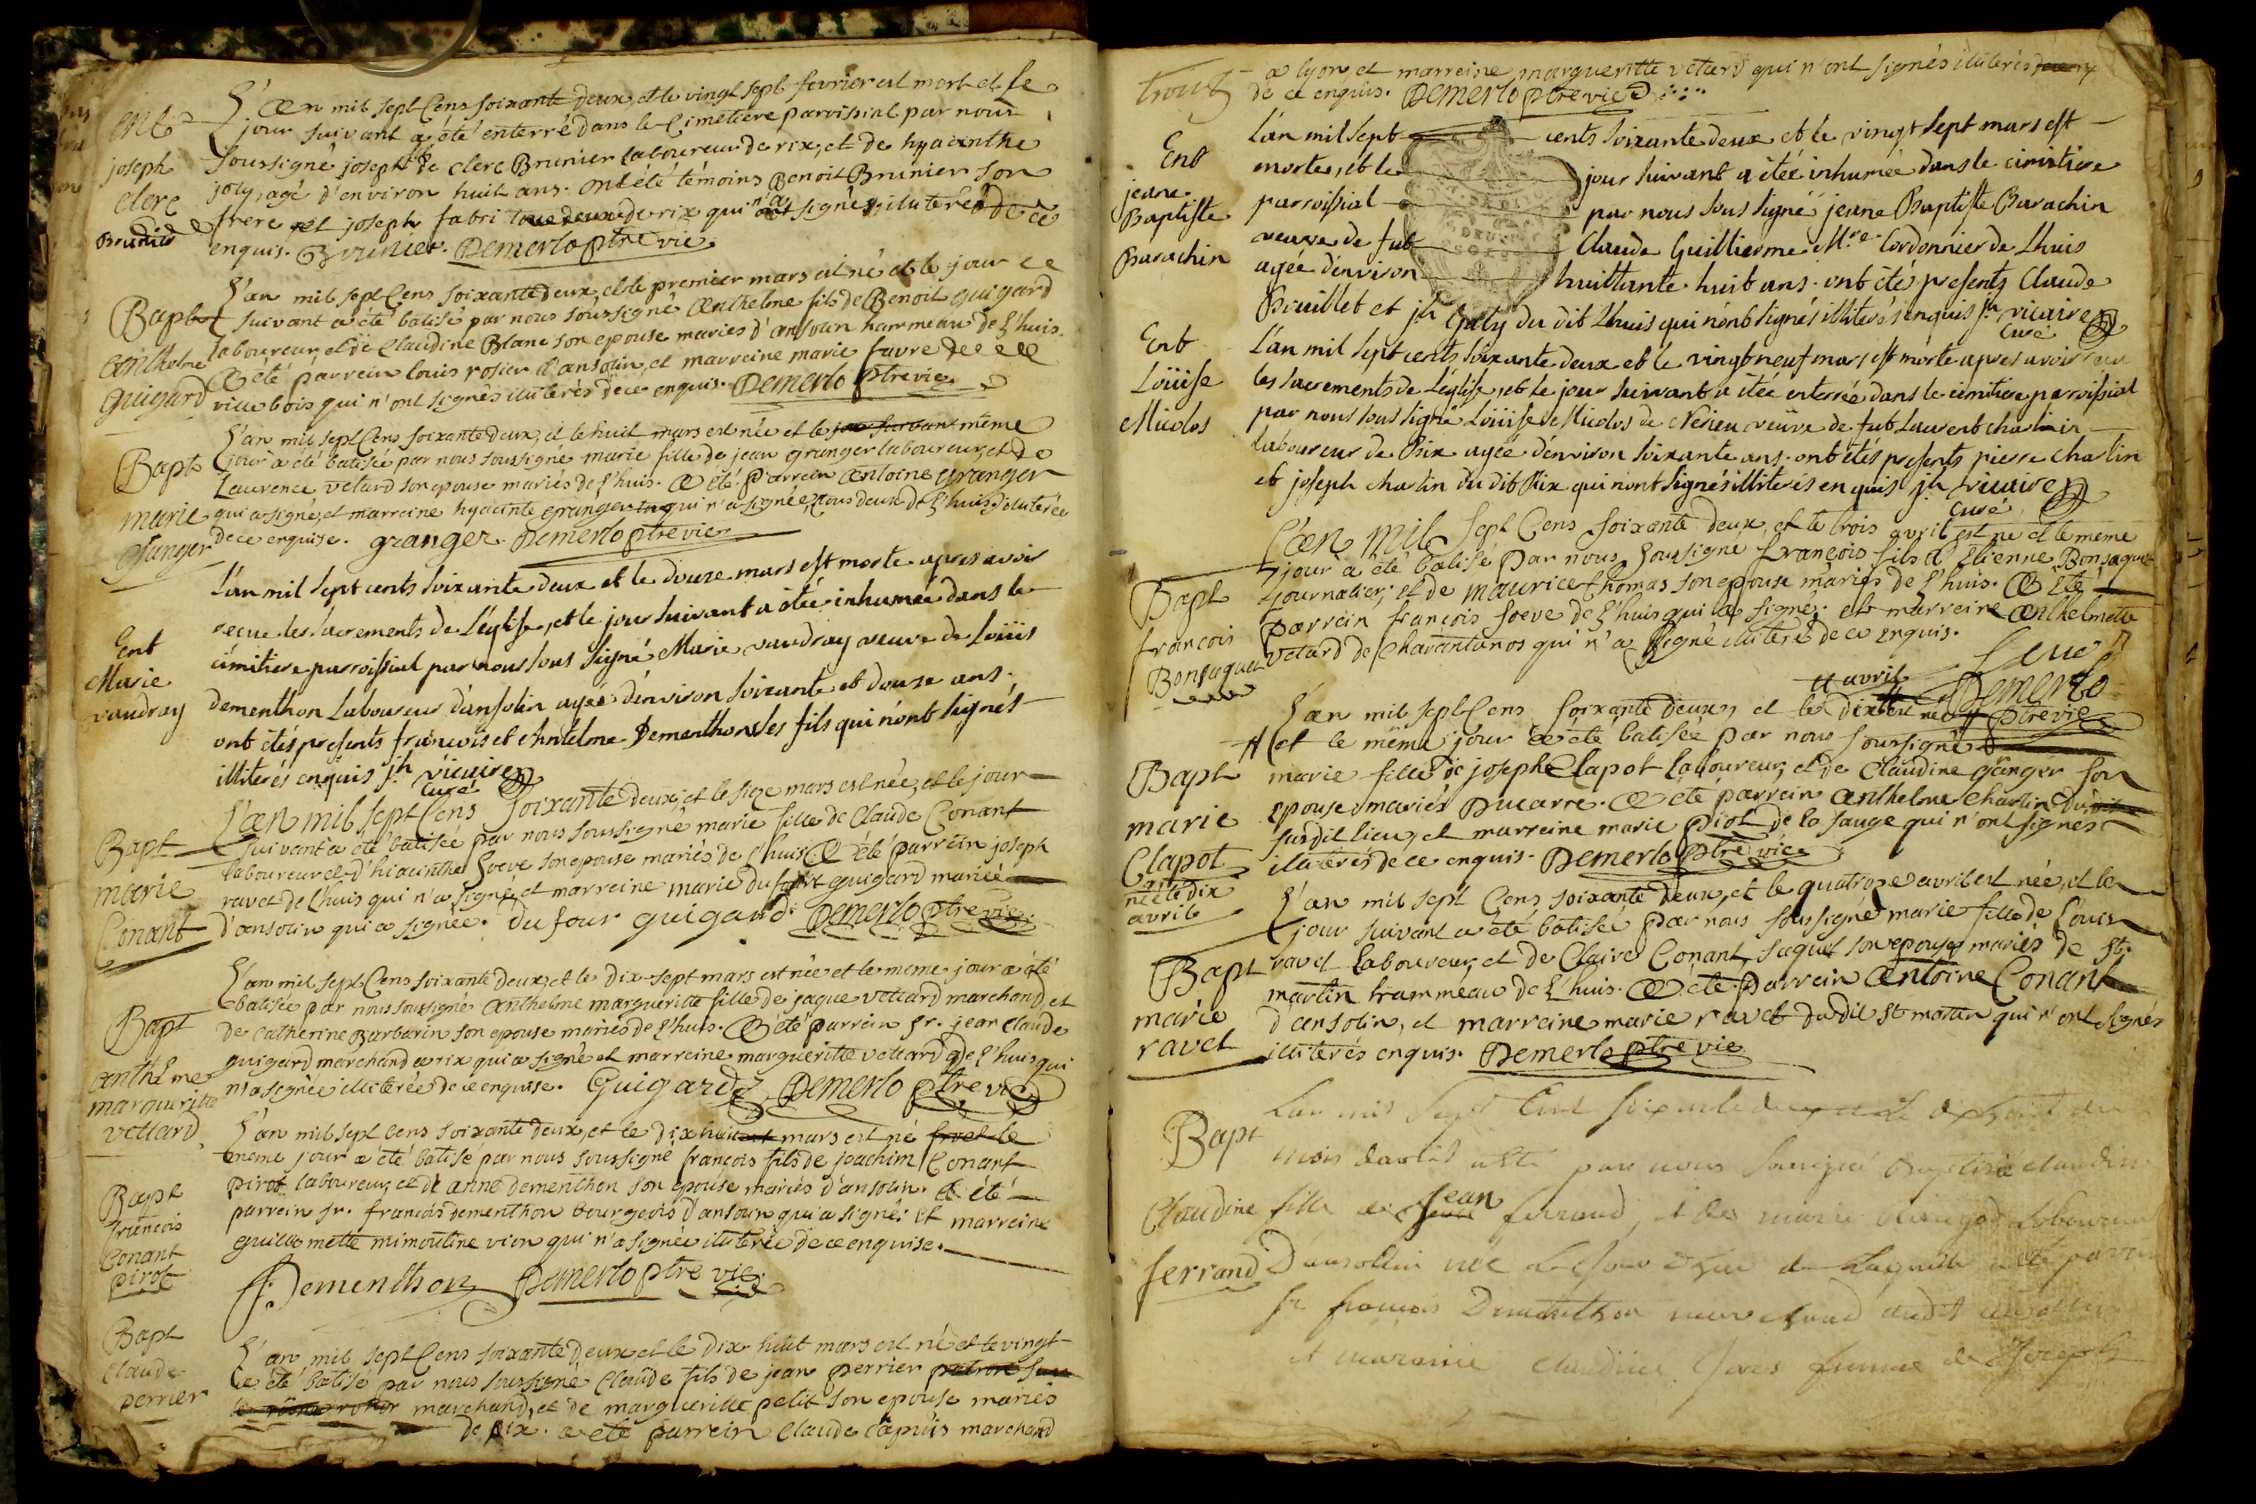 Ent
joseph
Clerc
Brunier
L'an mil sept Cens soixante deux, et le vingt sept fevrier est mort et le
jour suivant a été enterré dans le Cimetiere paroissial par nous
soussigné joseph fils de clerc Brunier laboureur de rix, et de hyacinthe
joly, agé d'environ huit ans. ont été témoins Benoit Brunier son
frere et joseph fabri tous deux de rix qui n'ont signés illiterés de ce
enquis. Brunier. Demerlo ptre vic.
Bapt
Anthelme
guigard
L'an mil sept Cens soixante deux, et le premier mars est né et le jour
suivant a été batisé par nous soussigné Anthelme fils de Benoit guigard
laboureur, et de Claudine Blanc son epouse mariés d'ansolin hammeau de l'huis.
A été parrein louis rosier d'ansolin, et marreine marie favre de
ville bois qui n'ont signés illiterés de ce enquis. Demerlo ptre vic.
Bapt
marie
granger
L'an mil sept Cens soixante deux, et le huit mars est née et le jour suivant même
jour a été batisée par nous soussigné marie fille de jean granger laboureur, et de
Laurence vetard son epouse mariés de l'huis. A été parrein Antoine granger
qui a signé, et marreine hyacinte granger qui n'a signée, tous deux de l'huis illiterée
de ce enquise. granger. Demerlo ptre vic
Ent
Marie
vaudray
L'an mil sept cents soixante deux et le douze mars est morte apres avoir
recue les sacrements de L'église, et le jour suivant a étée inhumée dans le
cimitiere parroissial par nous sous signé Marie vaudray veuve de Loüis
dementhon Laboureur d'ansolin agée d'environ soixante et douze ans.
ont étés presents francois et Anthelme Dementhon ses fils qui n'ont signés
illiterés enquis jh vicaire
Curé
Bapt
marie
Conant
L'an mil sept Cens soixante deux, et le sieze mars est née, et le jour
suivant a été batisée par nous soussigné marie fille de Claude Conant
laboureur et d'hiacinthe soeve son epouse mariés de l'huis. A été parrein joseph
ravet de l'huis qui n'a signé, et marreine marie dufour guigard mariée
d'ansolin qui a signée. du four guigard. Demerlo ptre vic.
Bapt
anthelme
margueritte
vettard
L'an mil sept Cens soixante deux, et le dix-sept mars est née et le meme jour a été
batisée par nous soussigné Anthelme margueritte fille de jaque vettard marchand, et
de Catherine Barbarin son epouse mariés de l'huis. A été parrein sr. jean Claude
guigard marchand a rix qui a signé et marreine margueritte vettard de l'huis qui
n'a signée illiterée de ce enquise. Guigard Demerlo ptre vic
Bapt
francois
Conant
pirot
L'an mil sept cens soixante deux, et le dix huit mars est né et le
meme jour a été batisé par nous soussigné francois fils de joachim Conant
pirot laboureur, et de anne dementhon son epouse mariés d'ansolin. A été
parrein sr. francois dementhon bourgeois d'ansolin qui a signé: et marreine
guillemette mimoutine vion qui n'a signée illiterée de ce enquise.
f. Dementhon Demerlo ptre vic.
Bapt
Claude
perrier
L'an mil sept Cens soixante deux et le dix huit mars est né et le vingt
a été batisé par nous soussigné Claude fils de jean perrier
marchand, et de margueritte petit son epouse mariés
de rix. a été parrein Claude Capuis marchand
a lyon, et marreine margueritte vétard qui n'ont signés illiterés
de ce enquis. Demerlo ptre vic
Ent
jeane
Baptiste
Barachin
L'an mil sept cents soixante deux et le vingt sept mars est
morte, et le jour suivant a étée inhumée dans le cimitiere
parroissial par nous sous signé jeane Baptiste Barachin
veuve de fut Claude Guillierme Mre Cordonnier de Lhuis
agée d'environ huittante huit ans. ont été presents Claude
Brouillet et jh Galy du dit Lhuis qui n'ont signés illiterés enquis jh vicaire
Curé
Ent
Loüise
Micolos
L'an mil sept cents soixante deux et le vingt neuf mars est morte apres avoir
les sacrements de L'église, et le jour suivant a étée enterrée dans le cimitiere parroissial
par nous sous signé Loüise Micolos de Nerieu veuve de fut Laurent charlin
Laboureur de Rix agée d'environ soixante ans. ont étés presents pierre Charlin
et joseph charlin du dit Rix qui n'ont signés illiterés enquis jh vicaire
Curé
Bapt
francois
Bonsaquet
L'an mil sept Cens soixante deux, et le trois avril est né et le meme
jour a été batisé par nous soussigné francois fils d'Etienne Bonsaquet
journalier, et de maurice thomas son epouse mariés de l'huis. A été
parrein francois soeve de l'huis qui a signé. et marreine Anthelmette
vetard de Charantanos qui n'a signé illiteré de ce enquis.
Demerlo
ptre vic
Bapt
marie
Clapot
née le dix
avril
11 avril
L'an mil sept Cens soixante deux, et le dix
et le même jour a été batisée par nous soussigné
marie fille de joseph Clapot laboureur, et de Claudine granger son
epouse mariés Ducarre. A été parrein Anthelme Charlin du
susdit lieu, et marreine marie piot de la sauge qui n'ont signés
illiterés de ce enquis. Demerlo ptre vic.
Bapt
marie
ravet
L'an mil sept Cens soixante deux, et le quatroze avril est née, et le
jour suivant a été batisée par nous soussigné marie fille de Louis
ravet laboureur, et de Claire Conant saquet son epouse mariés de st.
martin hammeau de l'huis. A été parrein Antoine Conant
d'ansolin, et marreine marie ravet du dit st martin qui n'ont signés
illiterés enquis. Demerlo ptre vic
Bapt
Claudine
ferrand
L'an mil sept Cent soixante deux et le dixhuit du
mois d'avril a été par nous soussigné Baptisée Claudine
fille de Jean ferrand, et de marie Laboureur
D'ansollin née le jour d'hier de Laquelle a été parrein
Sr francois Dementhon marchand audit ansollin
et marreine Claudine femme de Joseph